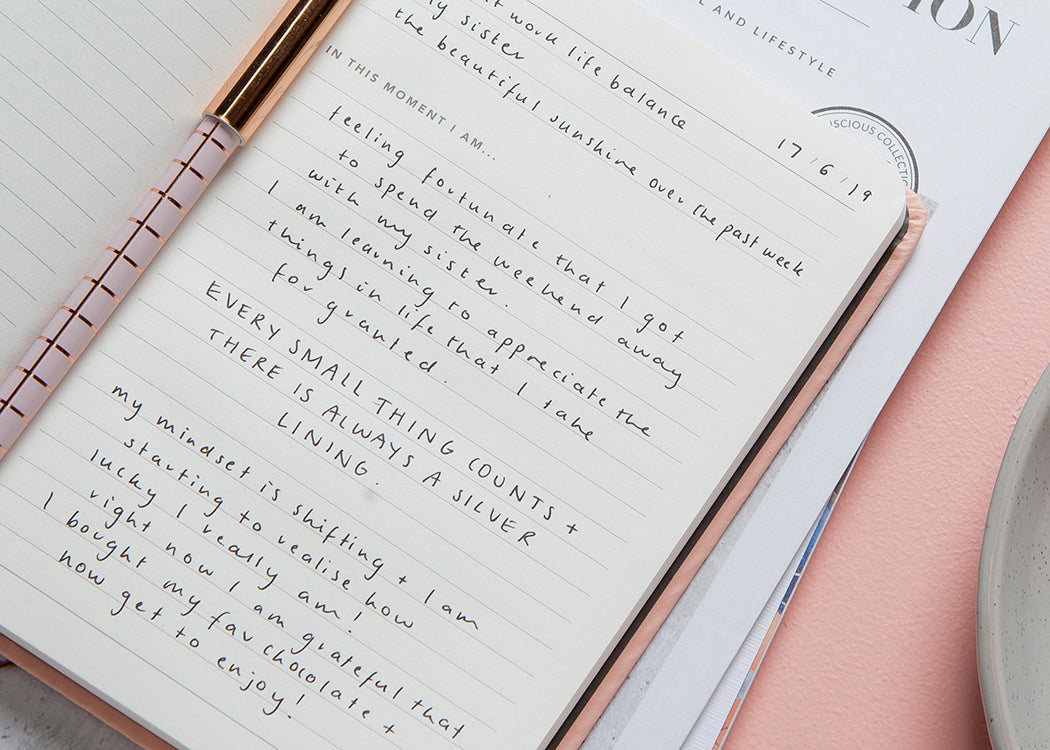 work life balance
sister
the beautiful sunshine over the past week
17/6/19
IN THIS MOMENT I AM...
feeling fortunate that I got
to spend the weekend away
with my sister.
I am learning to appreciate the
things in life that I take
for granted.
EVERY SMALL THING COUNTS +
THERE IS ALWAYS A SILVER
LINING.
my mindset is shifting + I am
starting to realise how
lucky I really am!
right now I am grateful that
I bought my fav chocolate +
now get to enjoy!
AND LIFESTYLE